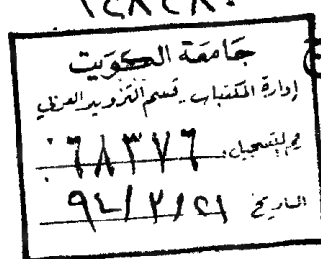 ١٤٨٤٨٠
جامعة الكويت
إدارة المكتبات - قسم التزويد العربي
رقم التسجيل: ٠٦٨٣٧٦
التاريخ ٩٤/٢/٢١